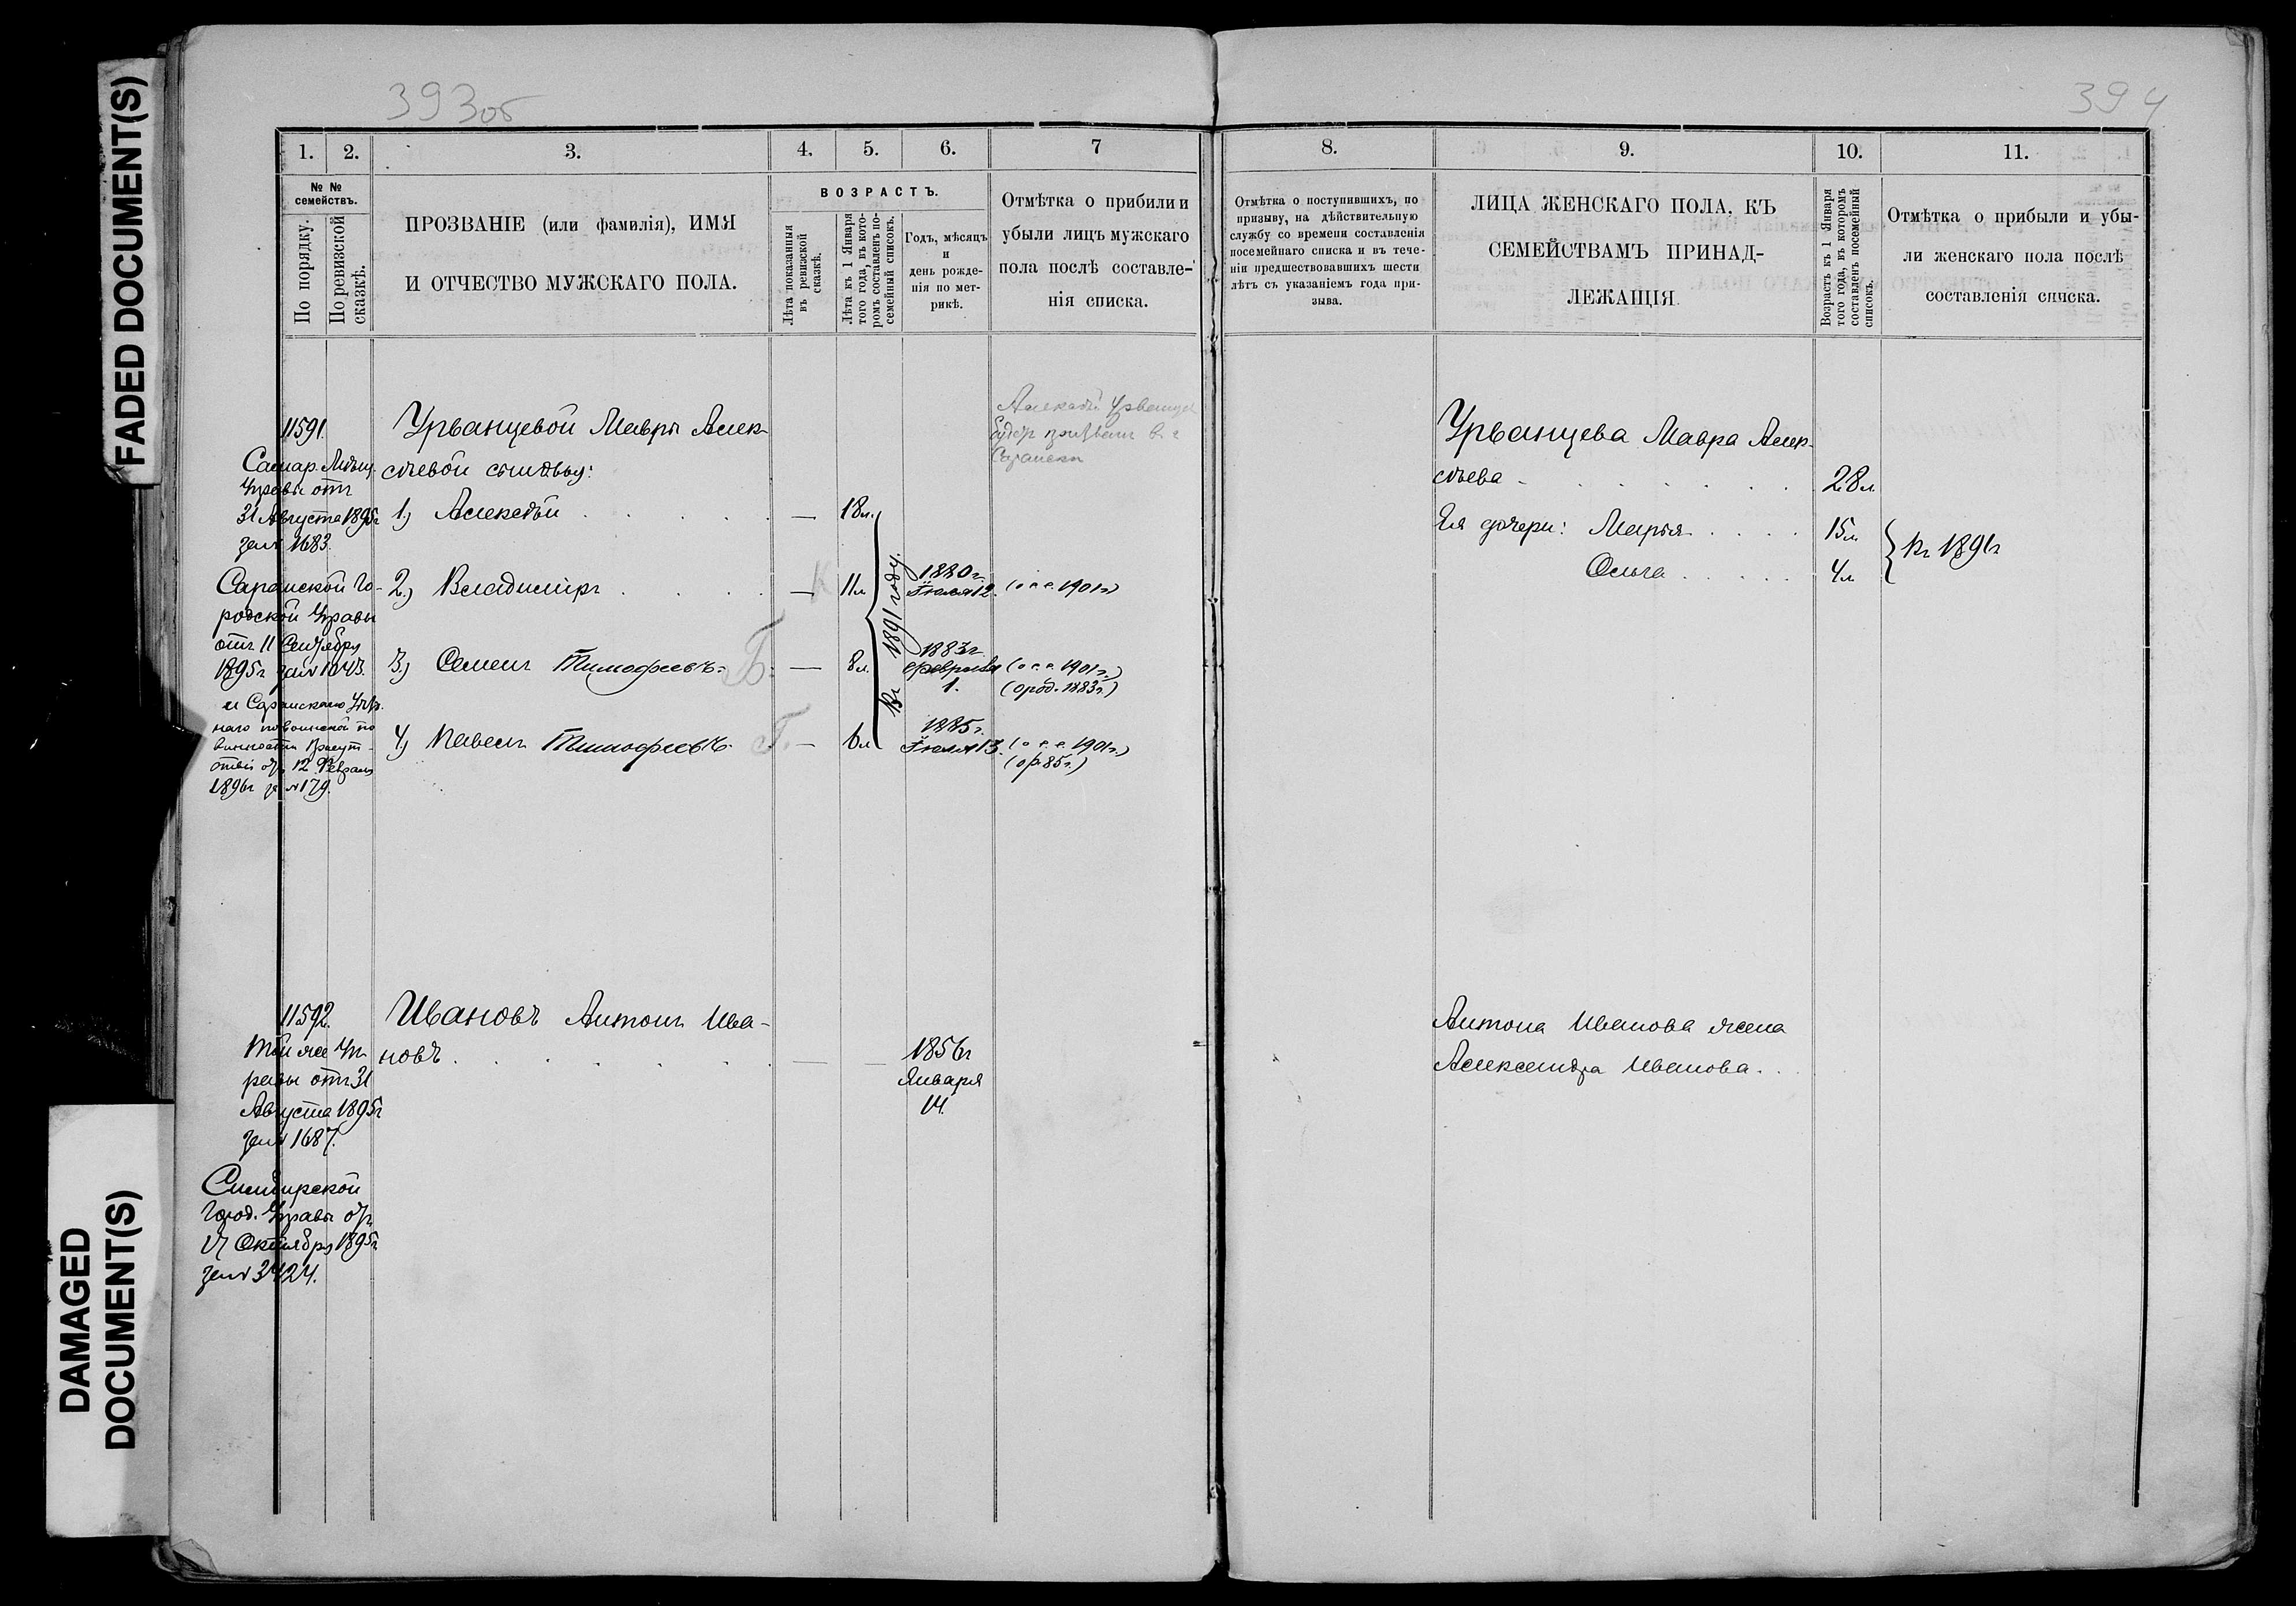 FADED DOCUMENT(S)
DAMAGED
DOCUMENT(S)
393об
1.
2.
3.
4.
5.
6.
7
№ №
семействъ.
По порядку.
По ревизской
сказкѣ.
ПРОЗВАНІЕ (или фамилія), ИМЯ
И ОТЧЕСТВО МУЖСКАГО ПОЛА.
ВОЗРАСТЪ.
Лѣта показанныя
въ ревизской
сказкѣ.
Лѣта къ 1 Января
того года, въ кото-
ромъ составленъ по-
семейный списокъ.
Годъ, мѣсяцъ
и
день рожде-
нія по мет-
рикѣ.
Отмѣтка о прибили и
убыли лицъ мужскаго
пола послѣ составле-
нія списка.
11591.
Самар. Мѣщ.
Управы отъ
31 Августа 1895г
за № 1683.
Саранской Го-
родской Управы
отъ 11 Сентября
1895г за № 1043.
и Саранскаго Уѣзд
наго по воинской по
винности Присут-
ствія отъ 12 Февраля
1896г за № 179.
Урванцевой Мавры Алек-
сѣевой сыновья:
1.) Алексѣй
—
18л.
2.) Владиміръ
К
—
11л
1880г.
Іюля 12.
(о п. с. 1901г)
3.) Семенъ Тимофеевъ
Б.
—
8л.
1883г
февраля
1.
(о п. с. 1901г.)
(о род. 1883г.)
4.) Павелъ Тимофеевъ.
Г.
—
6л
1885г.
Іюля 13.
(о п. с. 1901г.)
(о р. 85г.)
Въ 1891 году.
Алексѣй Урванцев
будетъ призван в г
Саранскѣ
11592.
Той же Уп-
равы отъ 31
Августа 1895г
за № 1687.
Симбирской
Город. Управы отъ
17 Октября 1895г
за № 3424.
Ивановъ Антонъ Ива-
новъ
—
—
1856г
Января
14.
394
8.
9.
10.
11.
Отмѣтка о поступившихъ, по
призыву, на дѣйствительную
службу со времени составленія
посемейнаго списка и въ тече-
ніи предшествовавшихъ шести
лѣтъ съ указаніемъ года при-
зыва.
ЛИЦА ЖЕНСКАГО ПОЛА, КЪ
СЕМЕЙСТВАМЪ ПРИНАД-
ЛЕЖАЩІЯ
Возрастъ къ 1 Января
того года, въ которомъ
составленъ посемейный
списокъ.
Отмѣтка о прибыли и убы-
ли женскаго пола послѣ
составленія списка.
Урванцева Мавра Алек-
сѣева
28л
Ея дочери: Марья
15л
Ольга
4л
Въ 1891г
Антона Иванова жена
Александра Иванова.